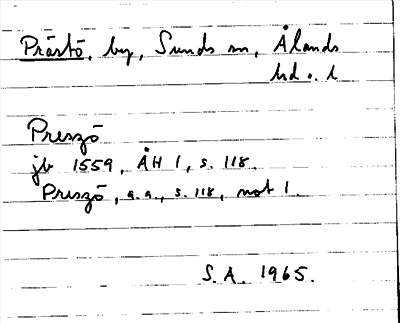 Prästö, by, Sunds sn, Ålands
hd o. l
Preszö
jb 1559, ÅH 1, s. 118.
Preszö, a.a., s. 118, not 1.
S. A. 1965.